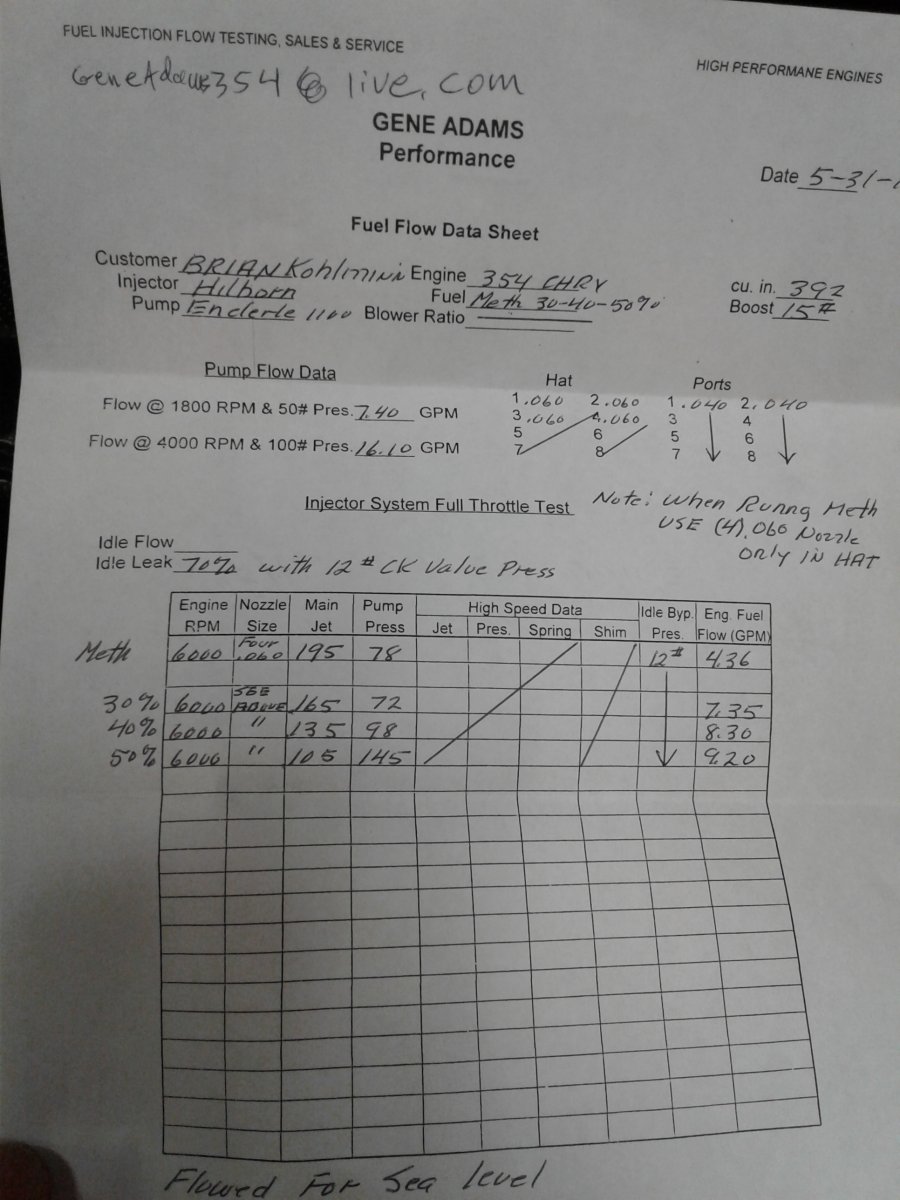 FUEL INJECTION FLOW TESTING, SALES & SERVICE
HIGH PERFORMANE ENGINES
GeneAdams354@live.com
GENE ADAMS
Performance
Date 5-31-1
Fuel Flow Data Sheet
Customer BRIAN Engine 354 CHRY cu. in. 392
Injector Hilborn Fuel Meth 30-40-50% Boost 15#
Pump Enderle 1100 Blower Ratio
Pump Flow Data Hat Ports
Flow @ 1800 RPM & 50# Pres. 7.40 GPM 1 .060 2 .060 1 .040 2 .040
3 .060 4 .060 3 4
Flow @ 4000 RPM & 100# Pres. 16.10 GPM 5 6 5 6
7 8 7 8
Injector System Full Throttle Test Note: When Runng Meth
USE (4) .060 Nozzle
ONLY IN HAT
Idle Flow
Idle Leak 70% with 12# CK Value Press
Engine RPM Nozzle Size Main Jet Pump Press High Speed Data Jet Pres. Spring Shim Idle Byp. Pres. Eng. Fuel Flow (GPM)
Meth 6000 Four .060 195 78 12# 4.36
30% 6000 SEE ABOVE 165 72 7.35
40% 6000 " 135 98 8.30
50% 6000 " 105 145 9.20
Flowed For Sea level